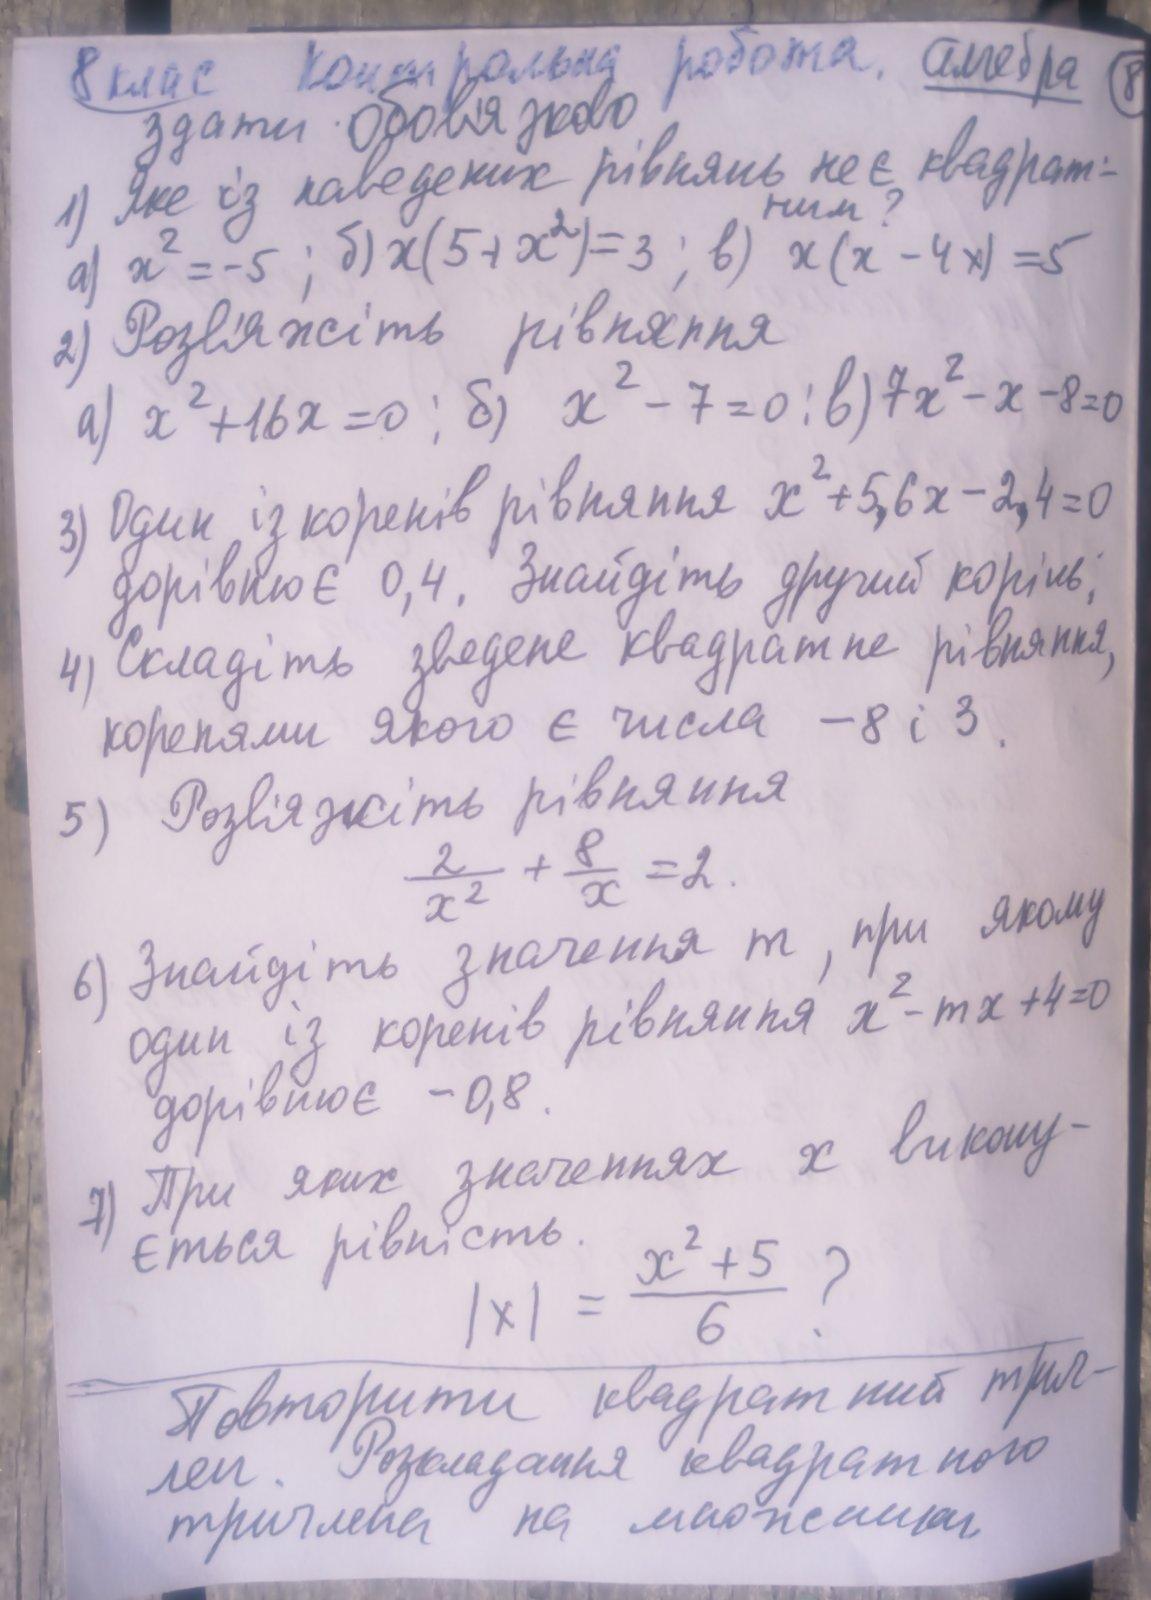 8 клас Контрольна робота. Алгебра 8
здати обов'язково
1) Яке із наведених рівнянь не є квадрат-
ним?
а) x² = -5; б) x(5+x²)=3; в) x(x - 4x) = 5
2) Розв'яжіть рівняння
а) x² + 16x = 0; б) x² - 7 = 0; в) 7x² - x - 8 = 0
3) Один із коренів рівняння x² + 5,6x - 2,4 = 0
дорівнює 0,4. Знайдіть другий корінь;
4) Складіть зведене квадратне рівняння,
коренями якого є числа -8 і 3.
5) Розв'яжіть рівняння
2/x² + 8/x = 2.
6) Знайдіть значення m, при якому
один із коренів рівняння x² - mx + 4 = 0
дорівнює -0,8.
7) При яких значеннях x викону-
ється рівність.
|x| = (x² + 5)/6 ?
Повторити квадратний трич-
лен. Розкладання квадратного
тричлена на множники